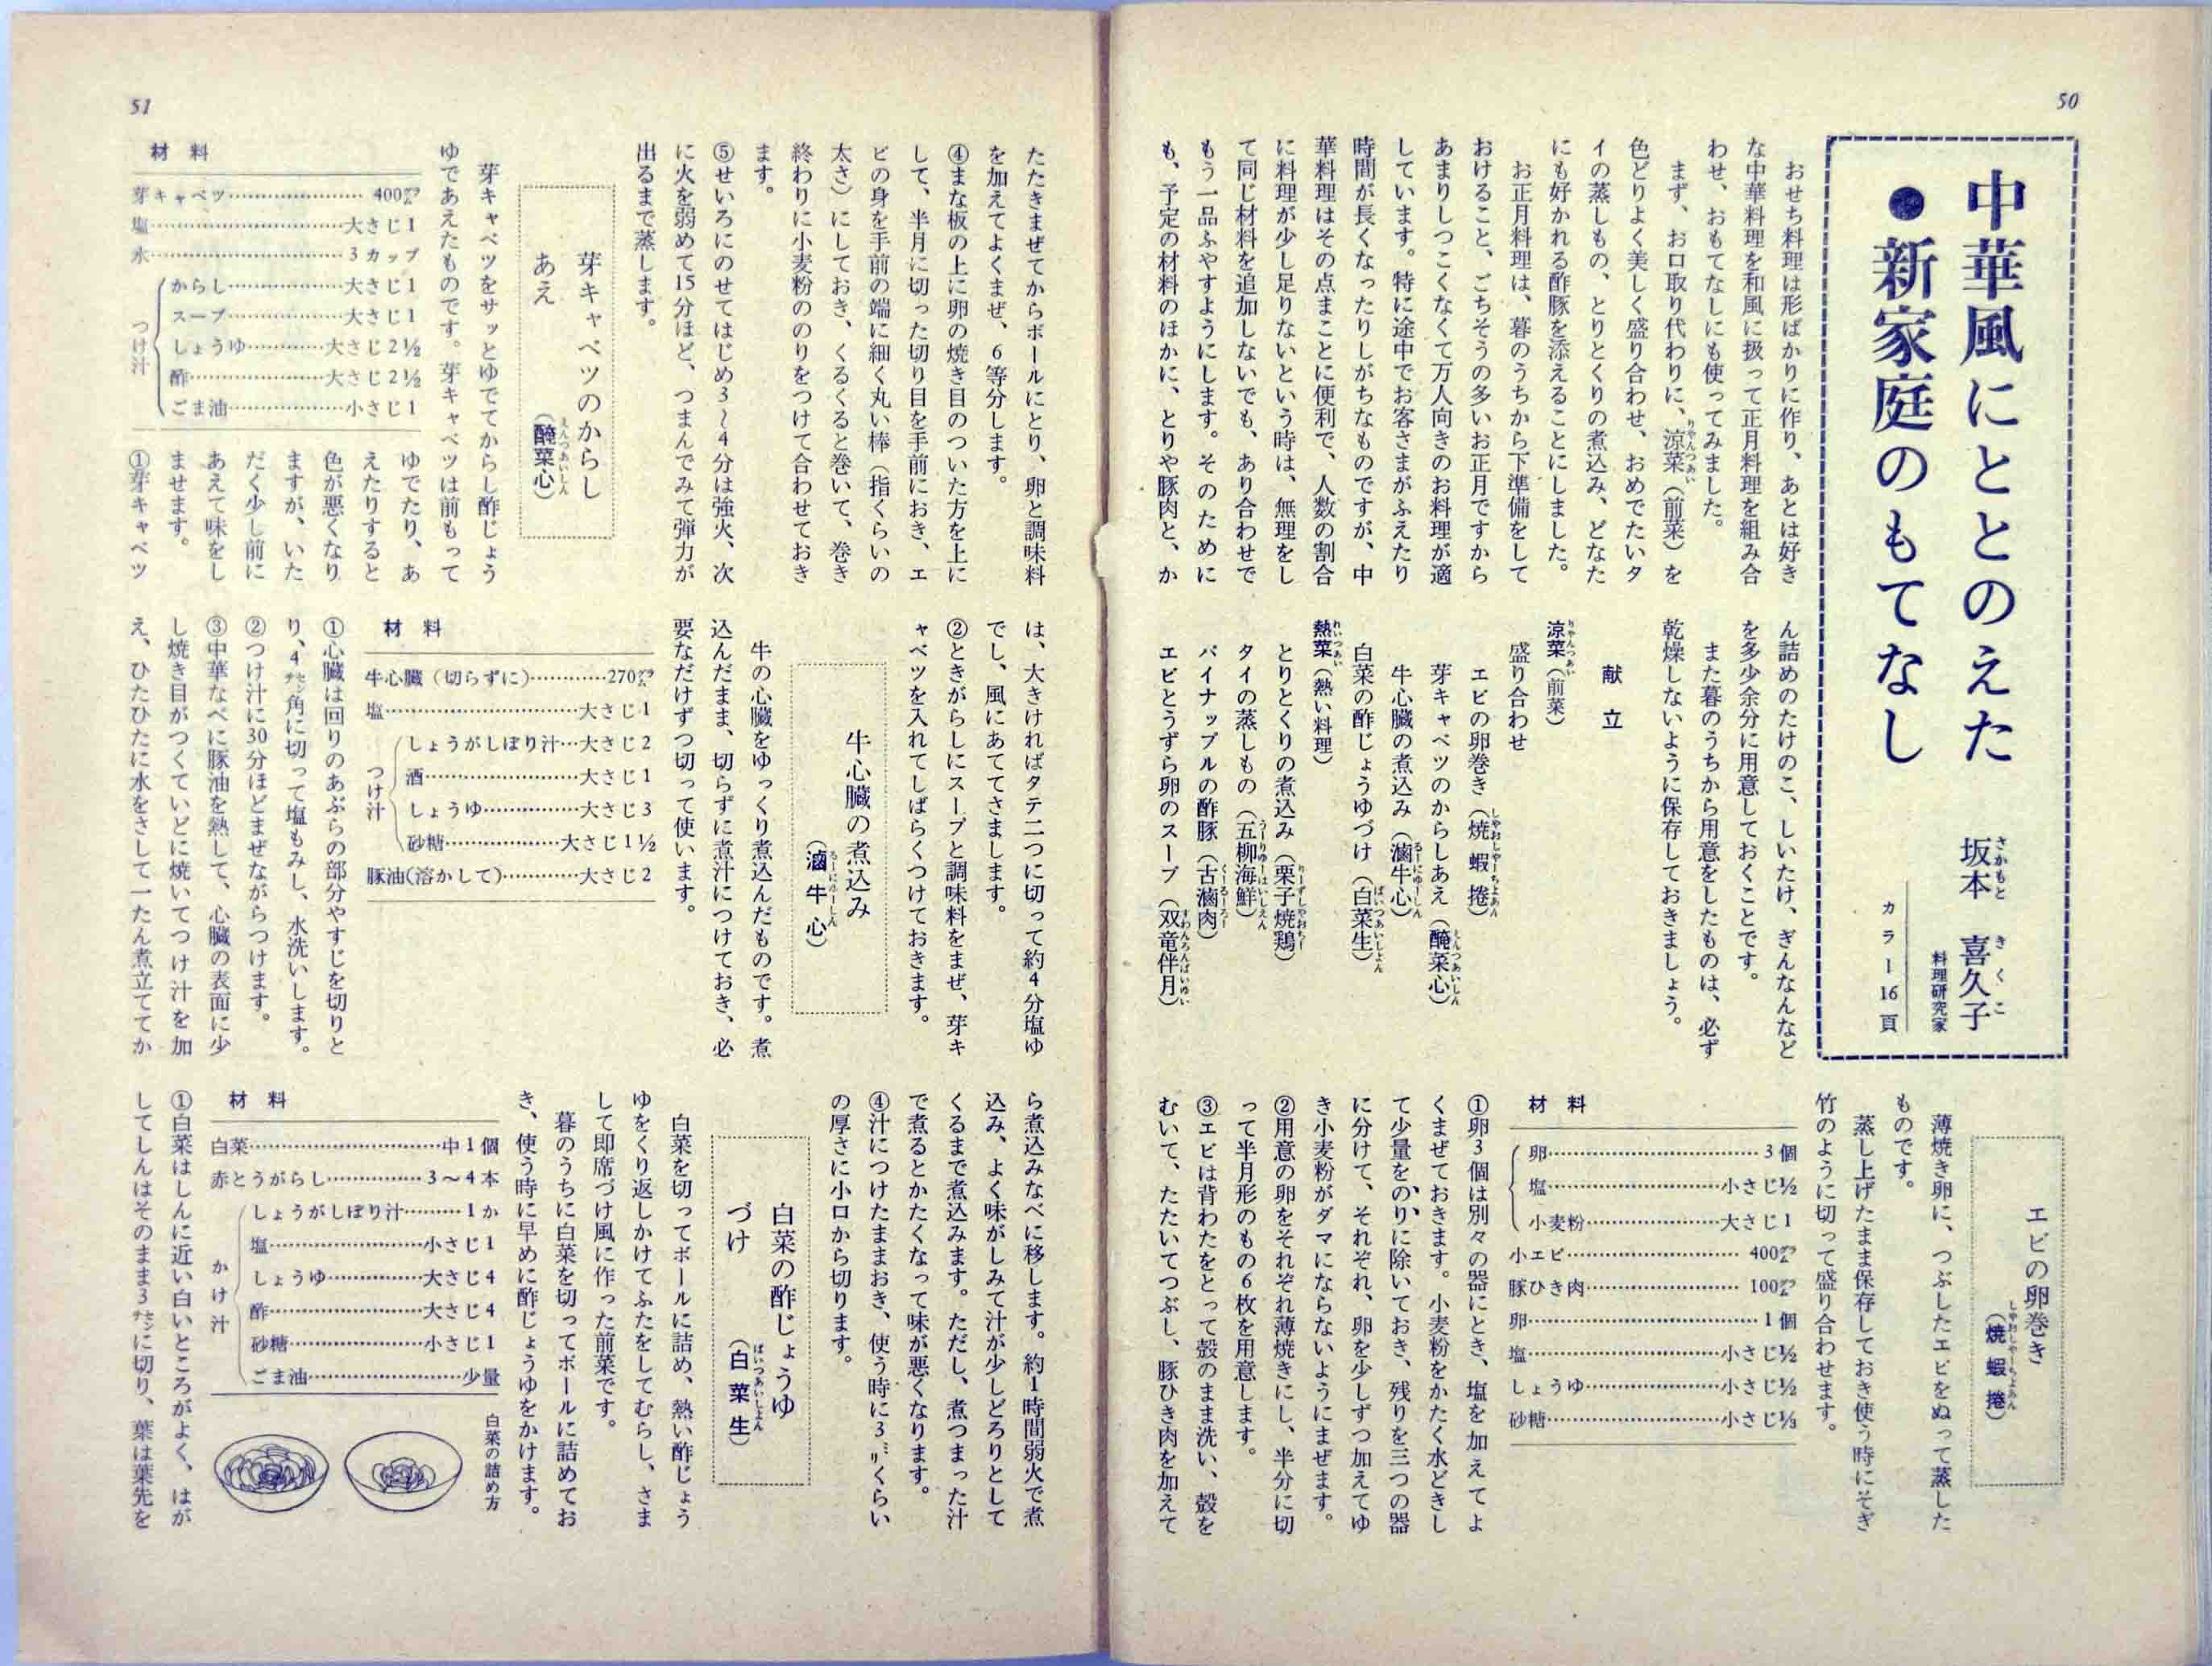 50
中華風にととのえた
●新家庭のもてなし
坂本 喜久子
さかもと きくこ
料理研究家
カラー16頁
おせち料理は形ばかりに作り、あとは好き
な中華料理を和風に扱って正月料理を組み合
わせ、おもてなしにも使ってみました。
まず、お口取り代わりに、涼菜（前菜）を
りゃんつあい
色どりよく美しく盛り合わせ、おめでたいタ
イの蒸しもの、とりとくりの煮込み、どなた
にも好かれる酢豚を添えることにしました。
お正月料理は、暮のうちから下準備をして
おけること、ごちそうの多いお正月ですから
あまりしつこくなくて万人向きのお料理が適
しています。特に途中でお客さまがふえたり
時間が長くなったりしがちなものですが、中
華料理はその点まことに便利で、人数の割合
に料理が少し足りないという時は、無理をし
て同じ材料を追加しないでも、あり合わせで
もう一品ふやすようにします。そのために
も、予定の材料のほかに、とりや豚肉と、か
ん詰めのたけのこ、しいたけ、ぎんなんなど
を多少余分に用意しておくことです。
また暮のうちから用意をしたものは、必ず
乾燥しないように保存しておきましょう。
献立
涼菜（前菜）
りゃんつあい
盛り合わせ
エビの卵巻き（焼蝦捲）
しやおしやーちょあん
芽キャベツのからしあえ（醃菜心）
えんつあいしん
牛心臓の煮込み（滷牛心）
るーにゅーしん
白菜の酢じょうゆづけ（白菜生）
ぱいつあいしょん
熱菜（熱い料理）
れいつあい
とりとくりの煮込み（栗子焼鶏）
りーずしやおちー
タイの蒸しもの（五柳海鮮）
うーりゅーはいしえん
パイナップルの酢豚（古滷肉）
くーるーろー
エビとうずら卵のスープ（双竜伴月）
すわんろんぱいゆい
エビの卵巻き
（焼蝦捲）
しやおしやーちょあん
薄焼き卵に、つぶしたエビをぬって蒸した
ものです。
蒸し上げたまま保存しておき使う時にそぎ
竹のように切って盛り合わせます。
材料
卵……3個
塩……小さじ½
小麦粉……大さじ1
小エビ……400㌘
豚ひき肉……100㌘
卵……1個
塩……小さじ½
しょうゆ……小さじ½
砂糖……小さじ⅓
①卵3個は別々の器にとき、塩を加えてよ
くまぜておきます。小麦粉をかたく水どきし
て少量をのりに除いておき、残りを三つの器
に分けて、それぞれ、卵を少しずつ加えてゆ
き小麦粉がダマにならないようにまぜます。
②用意の卵をそれぞれ薄焼きにし、半分に切
って半月形のもの6枚を用意します。
③エビは背わたをとって殻のまま洗い、殻を
むいて、たたいてつぶし、豚ひき肉を加えて
51
たたきまぜてからボールにとり、卵と調味料
を加えてよくまぜ、6等分します。
④まな板の上に卵の焼き目のついた方を上に
して、半月に切った切り目を手前におき、エ
ビの身を手前の端に細く丸い棒（指くらいの
太さ）にしておき、くるくると巻いて、巻き
終わりに小麦粉ののりをつけて合わせておき
ます。
⑤せいろにのせてはじめ3〜4分は強火、次
に火を弱めて15分ほど、つまんでみて弾力が
出るまで蒸します。
芽キャベツのからし
あえ
（醃菜心）
えんつあいしん
芽キャベツをサッとゆでてからし酢じょう
ゆであえたものです。芽キャベツは前もって
ゆでたり、あ
えたりすると
色が悪くなり
ますが、いた
だく少し前に
あえて味をし
ませます。
材料
芽キャベツ……400㌘
塩……大さじ1
水……3カップ
つけ汁
からし……大さじ1
スープ……大さじ1
しょうゆ……大さじ2½
酢……大さじ2½
ごま油……小さじ1
①芽キャベツ
は、大きければタテ二つに切って約4分塩ゆ
でし、風にあててさまします。
②ときがらしにスープと調味料をまぜ、芽キ
ャベツを入れてしばらくつけておきます。
牛心臓の煮込み
（滷牛心）
るーにゅーしん
牛の心臓をゆっくり煮込んだものです。煮
込んだまま、切らずに煮汁につけておき、必
要なだけずつ切って使います。
材料
牛心臓（切らずに）……270㌘
塩……大さじ1
つけ汁
しょうがしぼり汁……大さじ2
酒……大さじ1
しょうゆ……大さじ3
砂糖……大さじ1½
豚油(溶かして)……大さじ2
①心臓は回りのあぶらの部分やすじを切りと
り、4㌢角に切って塩もみし、水洗いします。
②つけ汁に30分ほどまぜながらつけます。
③中華なべに豚油を熱して、心臓の表面に少
し焼き目がつくていどに焼いてつけ汁を加
え、ひたひたに水をさして一たん煮立ててか
ら煮込みなべに移します。約1時間弱火で煮
込み、よく味がしみて汁が少しどろりとして
くるまで煮込みます。ただし、煮つまった汁
で煮るとかたくなって味が悪くなります。
④汁につけたままおき、使う時に3㍉くらい
の厚さに小口から切ります。
白菜の酢じょうゆ
づけ
（白菜生）
ぱいつあいしょん
白菜を切ってボールに詰め、熱い酢じょう
ゆをくり返しかけてふたをしてむらし、さま
して即席づけ風に作った前菜です。
暮のうちに白菜を切ってボールに詰めてお
き、使う時に早めに酢じょうゆをかけます。
材料
白菜……中1個
赤とうがらし……3〜4本
かけ汁
しょうがしぼり汁……1か
塩……小さじ1
しょうゆ……大さじ4
酢……大さじ4
砂糖……小さじ1
ごま油……少量
白菜の詰め方
①白菜はしんに近い白いところがよく、はが
してしんはそのまま3㌢に切り、葉は葉先を